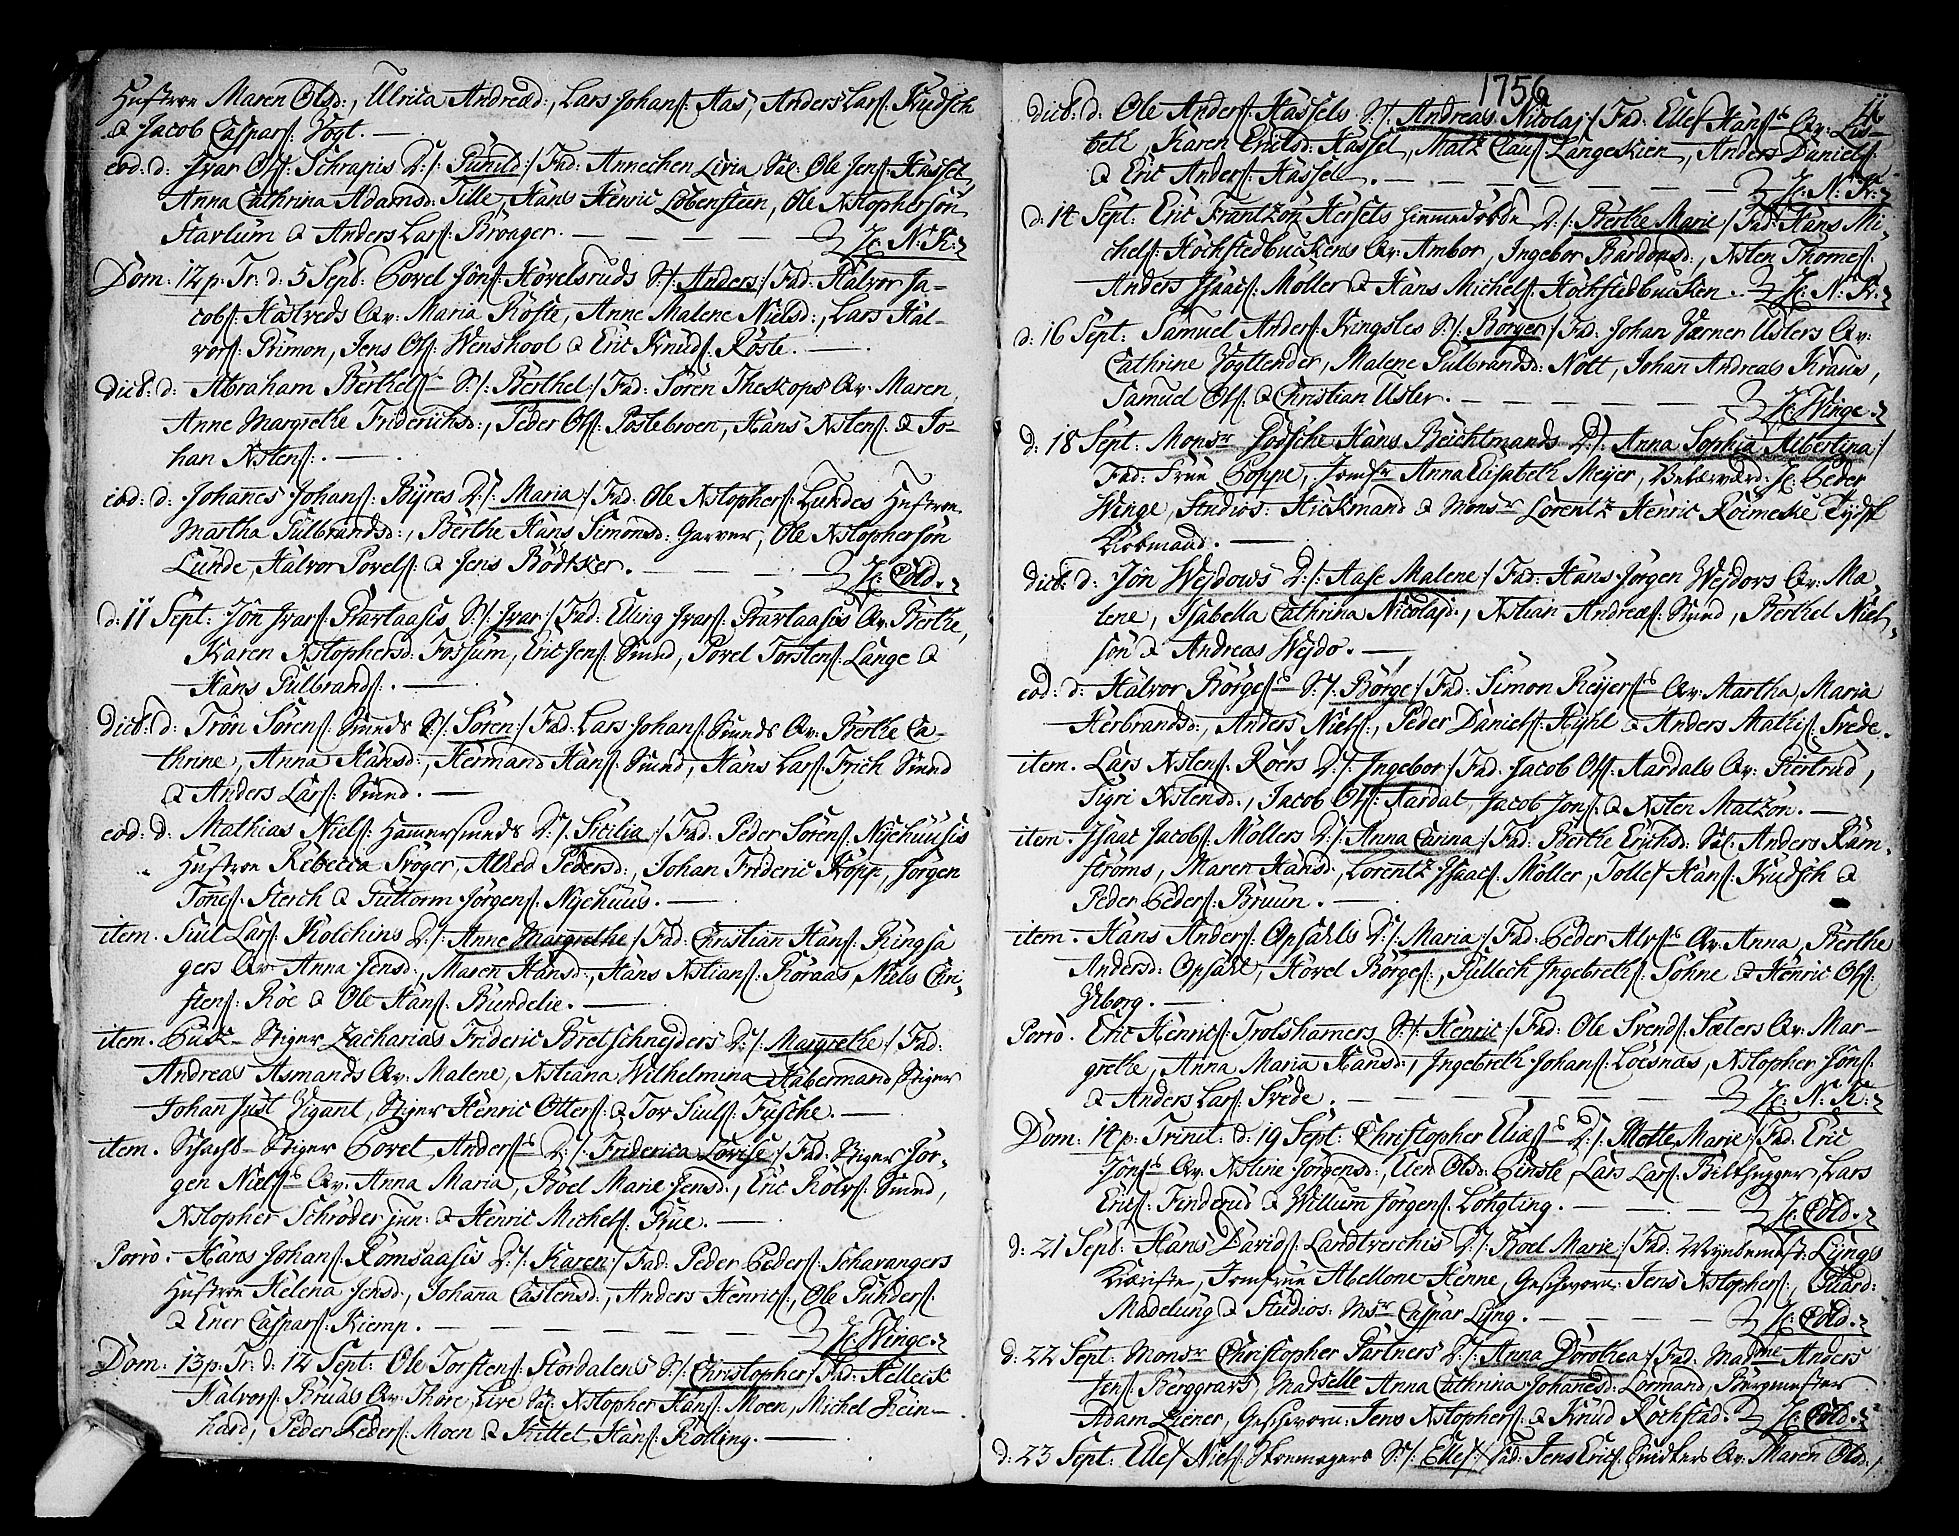 Hustroe Maren Olsd:, Ulrica Andread:, Lars Johans: Aas, Anders Lars: Kudsch
& Jacob Caspars: Vogt. —
eod: d: Ivar Ols: Schrapis D:/: Gunild:/ Fad: Annechen Livia Sal: Ole Jens: Hassel,
Anna Cathrina Adamsd: Tille, Hans Henric Løbensteen, Ole Xstophersön
Starlum & Anders Lars: Broager. — H: N: K:
Dom: 12 p. Tr: d: 5 Sept: Povel Jöns: Hovelsruds S:/: Anders:/ Fad: Halvor Ja-
cobs: Hastveds Qv: Maria Röste, Anne Malene Nielsd:, Lars Hal-
vors: Primon, Jens Ols: Wenskool & Eric Knuds: Röste. —
dict: d: Abraham Berthels: S:/: Berthel:/ Fad: Sören Theskops Qv. Maren,
Anne Margrethe Friderichsd:, Peder Ols: Postebroen, Hans Xstens: & Jo-
han Xstens: . —
eod: d: Johanes Johans: Byres D:/: Maria:/ Fad: Ole Xstophers: Lundes Hustroe
Martha Gulbrandsd:, Berthe Hans Simonsd: Garver, Ole Xstophersön
Lunde, Halvor Povels: & Jens Bödtker. — H: Cold.
d: 11 Sept: Jön Ivars: Skartaasis S:/: Ivar:/ Fad: Elling Ivars: Skartaasis Qv: Berthe,
Karen Xstophersd: Fossum, Eric Jens: Smed, Povel Torstens: Lange &
Hans Gulbrands: . —
dict: d: Trön Sörens: Smeds S:/: Sören:/ Fad: Lars Johans: Smeds Qv: Berthe Ca-
thrine, Anna Hansd:, Hermand Hans: Smed, Hans Lars: Trich Smed
& Anders Lars: Smed. —
eod: d: Mathias Niels: Hamersmeds D:/: Sicilia:/ Fad: Peder Sörens: Nyehuusis
Hustroe Rebecca Sröger, Alhed Pedersd:, Johan Frideric Kopp, Jörgen
Tönes: Sterch & Guttorm Jörgens: Nyehuus. —
item. Siul Lars: Kolchins D:/: Anne Margrethe:/ Fad: Christian Hans: Ringsa
gers Qv: Anna Jensd:, Maren Hansd:, Hans Xstians: Röraas, Niels Chri-
stens: Röe & Ole Hans: Bundelie. —
item. Stiger Zacharias Frideric Bretschneyders D:/: Margrethe:/ Fad:
Andreas Asmands Qv: Malene, Xstiana Wilhelmina Habermand, Stiger
Johan Just Vigant, Stiger Henric Otters: & Tor Siuls: Fusche. —
item. Schacht- Stiger Povel Anders: D:/: Friderica Lovise:/ Fad: Stiger Jör-
gen Niels: Qv: Anna Maria, Roel Marie Jensd:, Eric Rolvs: Smed,
Xstopher Schröder jun: & Henric Michels: Rue. —
Porro. Hans Johans: Romsaasis D:/: Karen:/ Fad: Peder Peders: Schavangers
Hustroe Helena Jensd:, Johana Castensd:, Anders Henrics:, Ole Gunders:
& Ener Caspars: Kiemp. — H: Winge.
Dom: 13 p: Tr: d: 12 Sept: Ole Torstens: Stordalens S:/: Christopher:/ Fad: Helleck
Halvors: Bruas Qv: Thore, Live Sal: Xstopher Hans: Moen, Michel Rein-
hard, Peder Peders: Moen & Kittel Hans: Kolling. —
1756
dict: d: Ole Anders: Hassels S:/: Andreas Nicolaj:/ Fad: Ellef Hans: Qv: Lis-
beth, Karen Ericsd: Hassel, Matz Claus: Langeskien, Anders Daniels:
& Eric Anders: Hassel. — H: N: K:
d: 14 Sept: Eric Frantzön Hersets D:/: Berthe Marie:/ Fad: Hans Mi-
chels: Hochstedbuckens Qv: Ambor, Ingebor Bardonsd:, Xsten Thomes:
Anders Isaacs: Möller & Hans Michels: Hochstedbucken. H: N: K:
d: 16 Sept: Samuel Anders: Kingstes S:/: Börger:/ Fad: Johan Verner Usters Qv:
Cathrine Vogttender, Malene Gulbrandsd: Nott, Johan Andreas Kraus,
Samuel Ols: & Christian Uster. — H: Winge.
d: 18 Sept: Monsr Hans Beichtmands D:/: Anna Sophia Albertina:/
Fad: Frue Poppe, Jomfr Anna Elisabeth Meyer, H: Peder
Winge, Studios: Hickmand & Monsr Lorentz Henric Roimeke Tydsk
Kiobmand. —
dict: d: Jön Wejdows D:/: Aase Malene:/ Fad: Hans Jörgen Wejdovs Qv: Ma-
lene, Isabella Cathrina Nicolajd:, Xstian Andreas: Smed, Berthel Niel-
sön & Andreas Wejdo. —
eod: d: Halvor Börges: S:/: Börge:/ Fad: Simon Reyers: Qv: Martha, Maria
Herbrandsd:, Anders Niels:, Peder Daniels: Hyhl & Anders Mathis: Svede.
item. Lars Xstens: Roers D:/: Ingebor:/ Fad: Jacob Ols: Aardals Qv: Giertrud,
Sigri Xstensd:, Jacob Ols: Aardal, Jacob Jons: & Xsten Matzön. —
item. Isaac Jacobs: Möllers D:/: Anna Carina:/ Fad: Berthe Erichsd: Sal: Anders Ram-
ströms, Maren Hansd:, Lorentz Isaacs: Möller, Tollef Hans: Kudsch &
Peder Peders: Bruun. —
item. Hans Anders: Opsahls D:/: Maria:/ Fad: Peder Alvs: Qv: Anna, Berthe
Andersd: Opsahl, Hovel Börges:, Gullech Ingebreths: Sohne & Henric Ols:
Viborg. —
Porro. Eric Henrics: Trolshamers S:/: Henric:/ Fad: Ole Svends: Sæters Qv: Mar-
grethe, Anna Maria Hansd:, Ingebreth Johans: Loesnæs, Xstopher Jöns:
& Anders Lars: Svede. — H: N: K:
Dom: 14 p: Trinit: d: 19 Sept: Christopher Elias: D:/: Mette Marie:/ Fad: Eric
Jöns: Qv: Xstine Jörgensd:, Elen Olsd: Einste, Lars Lars: Bilthugger, Lars
Erics: Finderud & Willum Jörgens: Löngting. — H: Cold.
d: 21 Sept: Hans Davids: Landtreschis D:/: Roel Marie:/ Fad: Myntemest: Lyngs
Kiæriste, Jomfrue Abellone Henne, Geschvorn: Jens Xstophers:, Guard:
Madelung & Studios: Msr Caspar Lyng. — H: Cold.
d: 22 Sept: Monsr Christopher Gartners D:/: Anna Dorothea:/ Fad: Madme Anders
Jens: Berggravs, Madselle Anna Cathrina Johanesd: Lormand, Bergmester
Adam Ziener, Geschvorn: Jens Xstophers: & Knud Rochstad. H: Cold.
d: 23 Sept: Ellef Niels: Skomagers S:/: Ellef:/ Fad: Jens Erics: Snidkers Qv: Maren Olsd:,